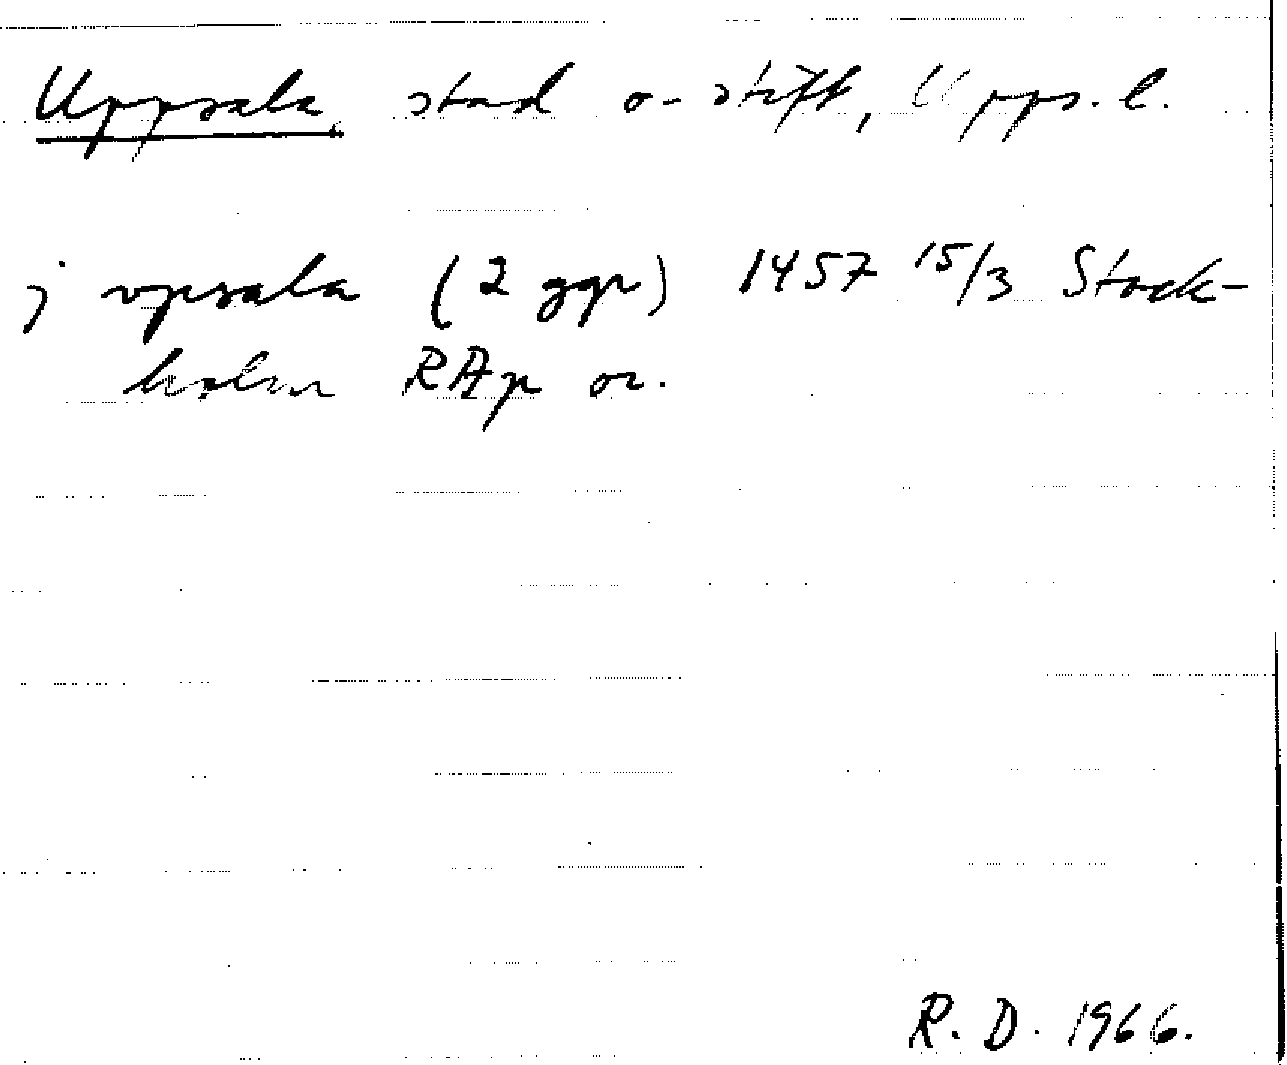 Uppsala stad o- stift, Upps. l.
j vpsala (2 ggr) 1457 15/3 Stock-
holm RAp or.
R. D. 1966.